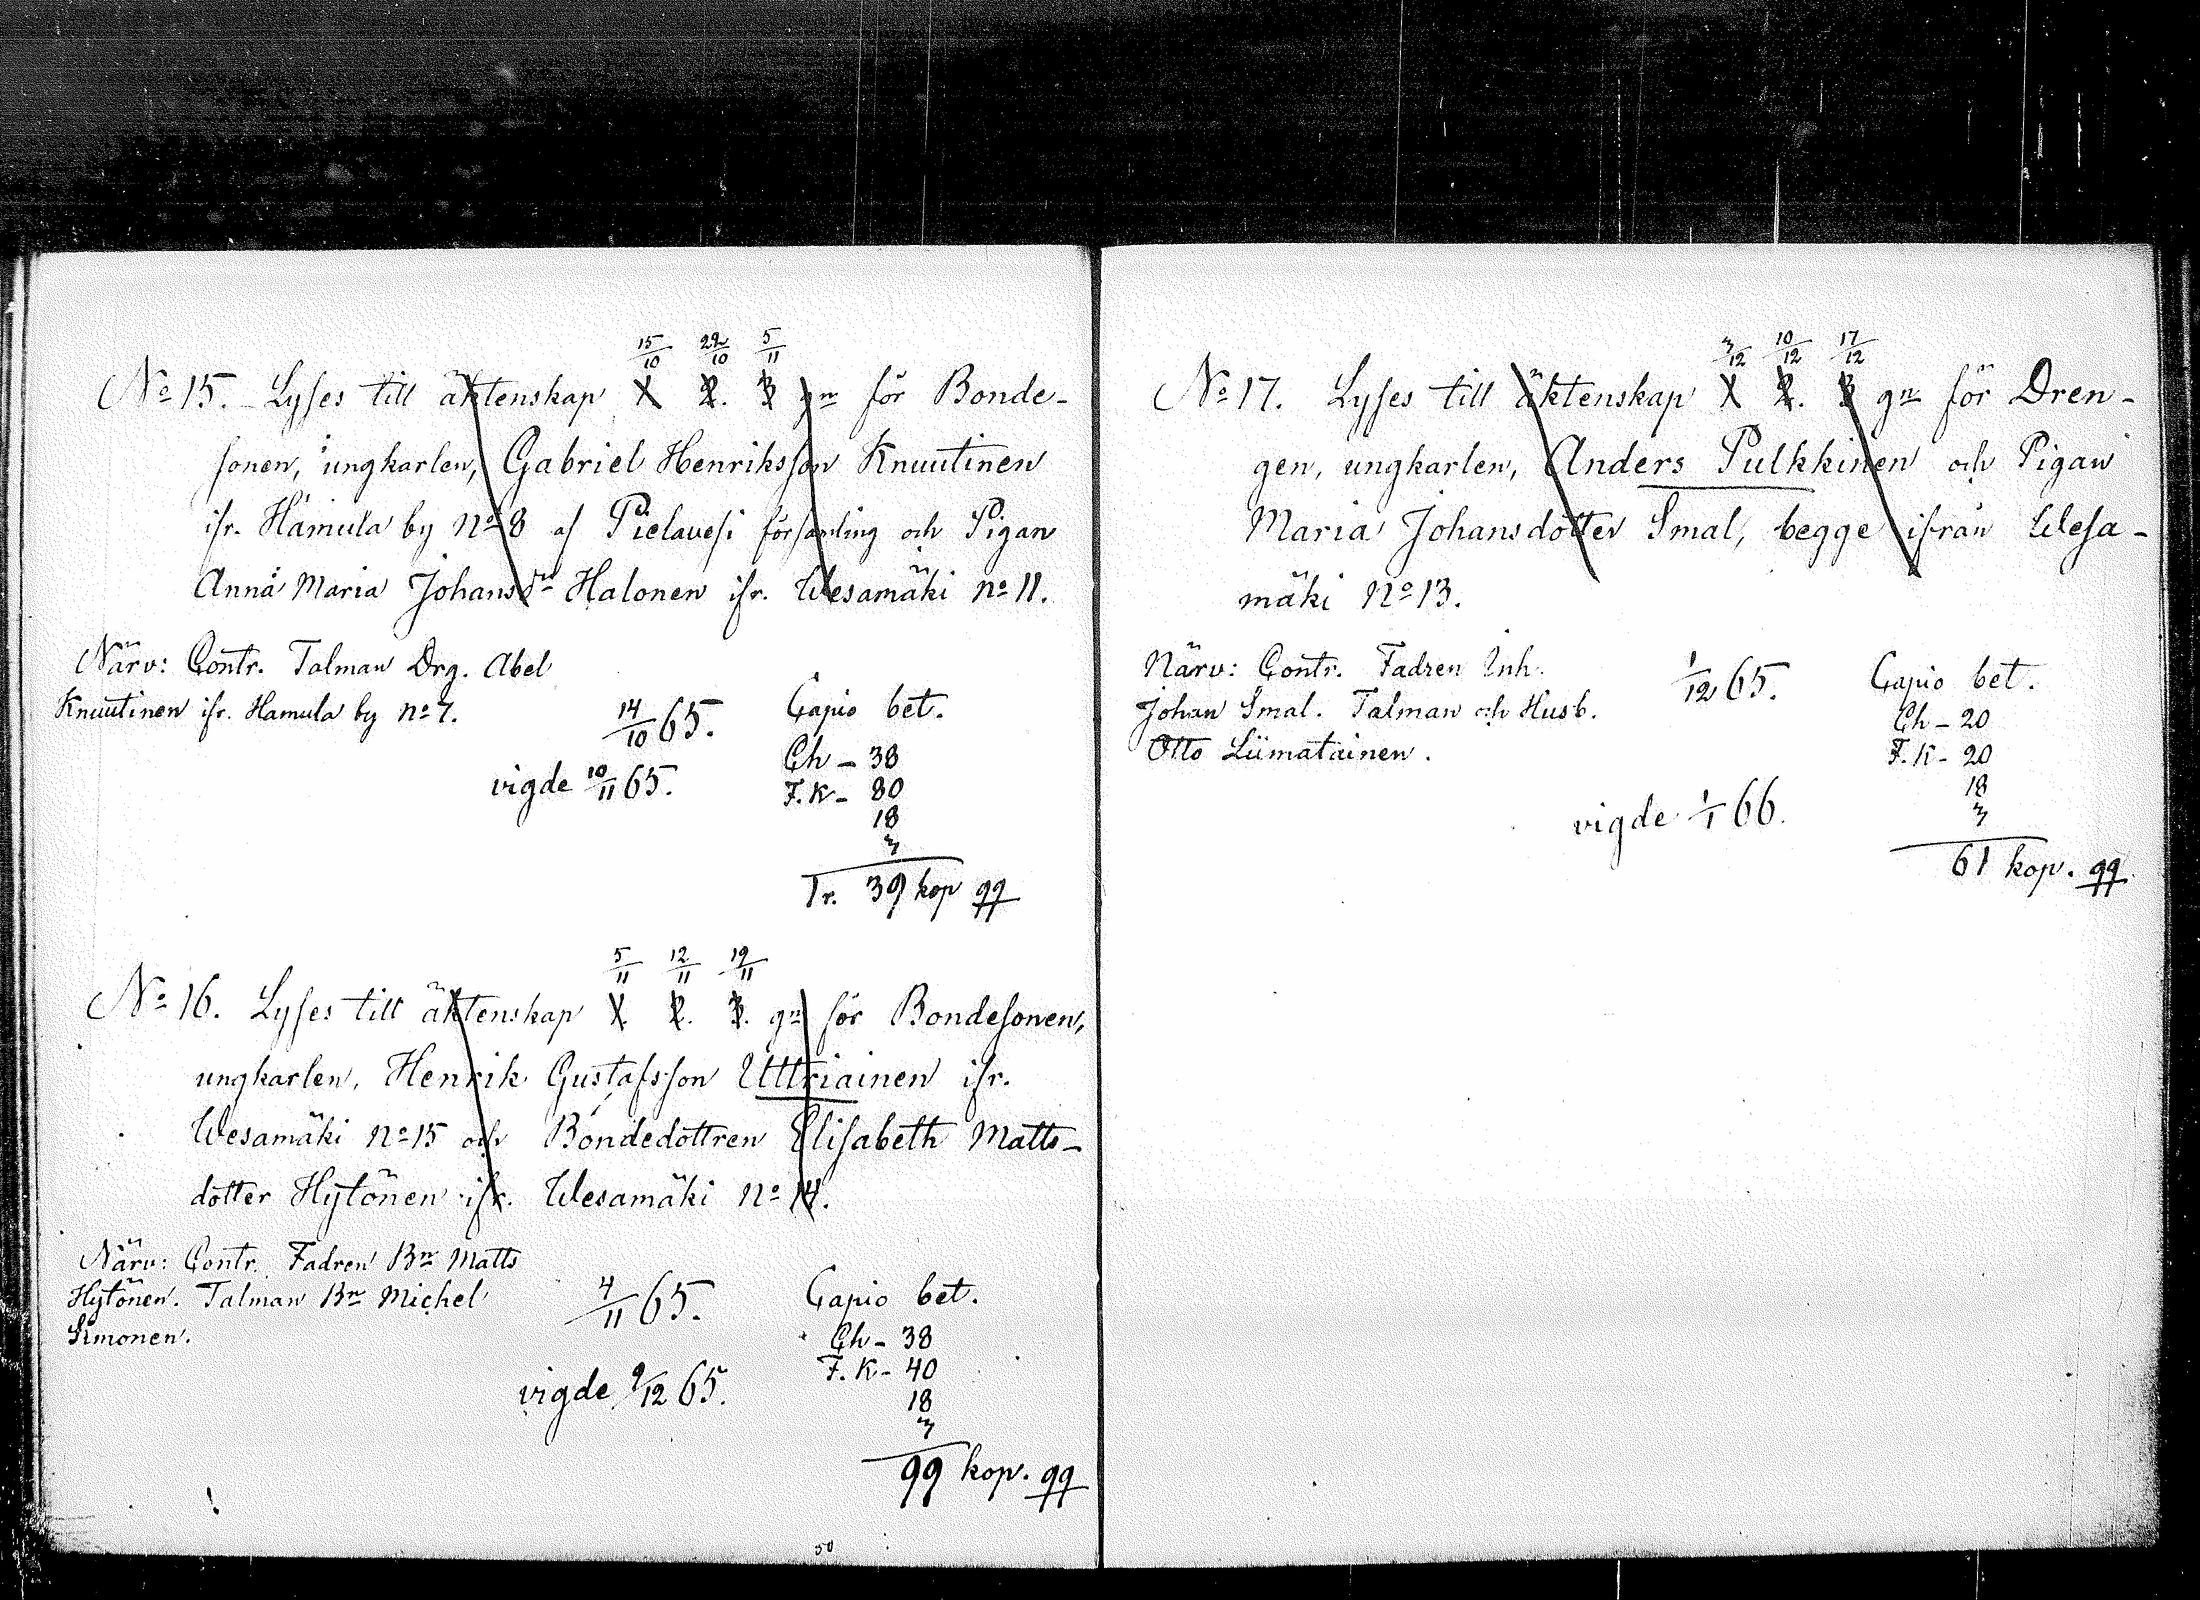 15/10 22/10 5/11
No 15. Lyses till äktenskap 1. 2. 3 gn för Bonde-
sonen, ungkarlen, Gabriel Henriksson Knuutinen
ifr. Hamula by No 8 af Pielavesi församling och Pigan
Anna Maria Johansdr Halonen ifr. Wesamäki No 11.
Närv: Contr. Talman Drg. Abel
Knuutinen ifr. Hamula by No 7.
14/10 65.
vigde 10/11 65.
Capio bet.
Ch – 38
F.K – 80
18
3
1 r. 39 kop
5/11 12/11 19/11
No 16. Lyses till äktenskap 1. 2. 3. gn för Bondesonen,
ungkarlen, Henrik Gustafsson Uttriainen ifr.
Wesamäki No 15 och Bondedottren Elisabeth Matts-
dotter Hytönen ifr. Wesamäki No 14.
Närv: Contr. Fadren Bn Matts
Hytönen. Talman Bn Michel
Simonen.
4/11 65.
vigde 9/12 65.
Capio bet.
Ch – 38
F.K – 40
18
3
99 kop.
50
3/12 10/12 17/12
No 17. Lyses till äktenskap 1 2. 3 gn för Dren-
gen, ungkarlen, Anders Pulkkinen och Pigan
Maria Johansdotter Smal, begge ifrån Wesa-
mäki No 13.
Närv: Contr. Fadren Inh.
Johan Smal. Talman och Husb.
Otto Liimatainen.
1/12 65.
vigde 1/1 66.
Capio bet.
Ch – 20
F.K – 20
18
3
61 kop.